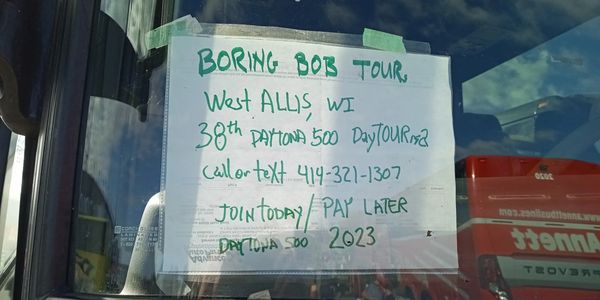 BORING BOB TOUR,
West ALLIS, WI
38th DAYTONA 500 DayTOUR
Call or text 414-321-1307
JOIN TODAY / PAY LATER
DAYTONA 500 2023
2020
www.annettbuslines.com
Annett
PREVOST